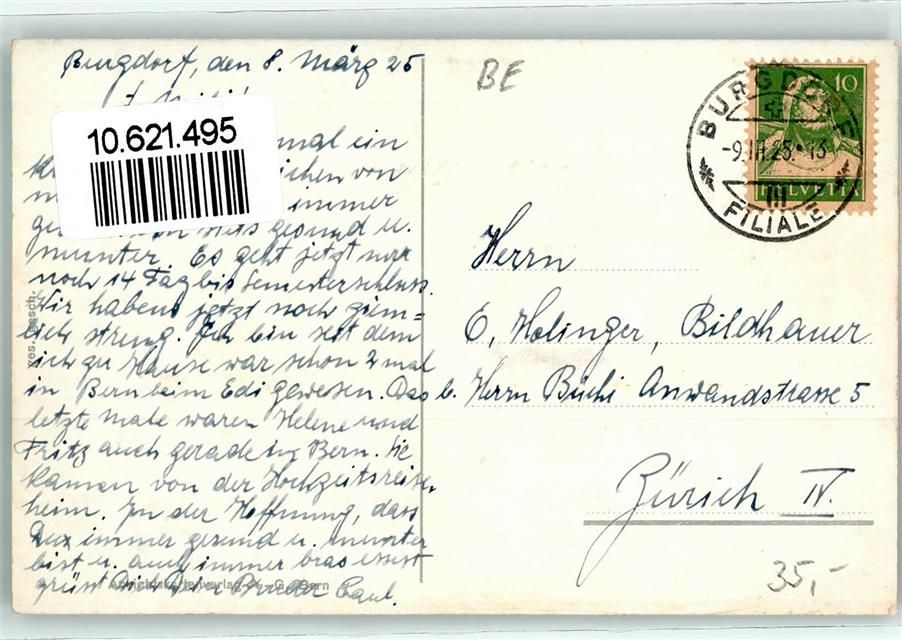 Burgdorf, den 8. März 25
10.621.495
mal ein
von
immer
gesund u.
munter. Es geht jetzt nur
noch 14 Tag bis Semesterschluss.
Wir haben jetzt noch ziem=
lich streng. Ich bin seit dem
ich zu Hause war schon 2 mal
in Bern beim Edi gewesen. Das
letzte male waren Helene und
Fritz auch gerade in Bern. Sie
kamen von der Hochzeitsreise
heim. In der Hoffnung, dass
Du immer gesund u. munter
bist u. auch immer brav essest
grüsst Dich Dein Bruder Paul.
BE
BURGDORF
-9.III.25.-13
III
FILIALE
10
HELVETIA
Herrn
E. Holinger, Bildhauer
b. Herrn Büchi Anwandstrasse 5
Zürich IV.
35,-
ges. gesch.
Bern